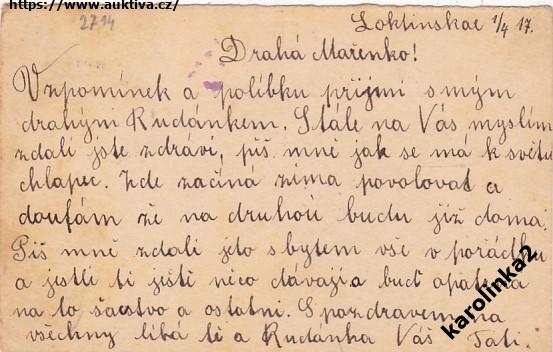 https://www.auktiva.cz/
2714
Loktinskae 1/4 17.
Drahá Mařenko!
Vzpomínek a políbku přijmi s mým
drahým Rudánkem. Stále na Vás myslím
zdali jste zdrávi, piš mně jak se má k světu
chlapec. Zde začíná zima povolovat a
doufám že na druhou budu již doma.
Piš mně zdali jeto s bytem vše v pořádku
a jestli ti ještě něco dávají a buď opatrná
na to šactvo a ostatni. S pozdravem na
všechny líbá tě a Rudánka Váš Tati.
karolinka2